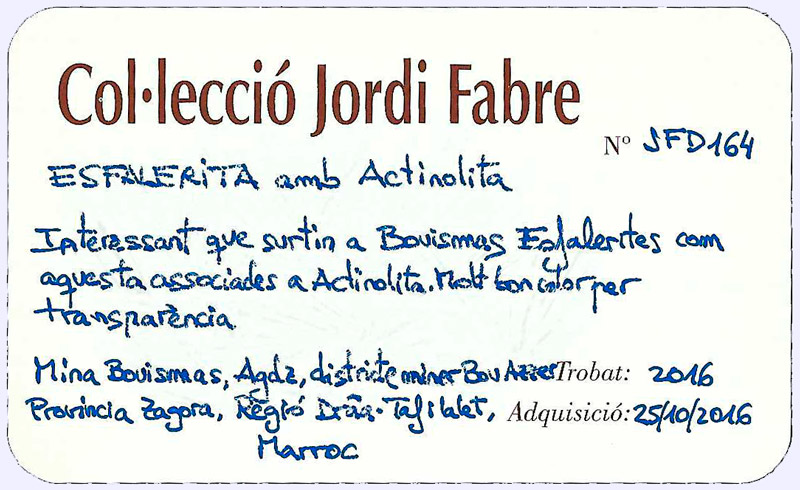 Col·lecció Jordi Fabre
Nº JFD164
ESFALERITA amb Actinolita
Interessant que surtin a Bouismas Esfalerites com
aquesta associades a Actinolita. Molt bon color per
transparència
Mina Bouismas, Agdz, districte miner Bou Azzer Trobat: 2016
Província Zagora, Regió Drâa-Tafilalet, Adquisició: 25/10/2016
Marroc